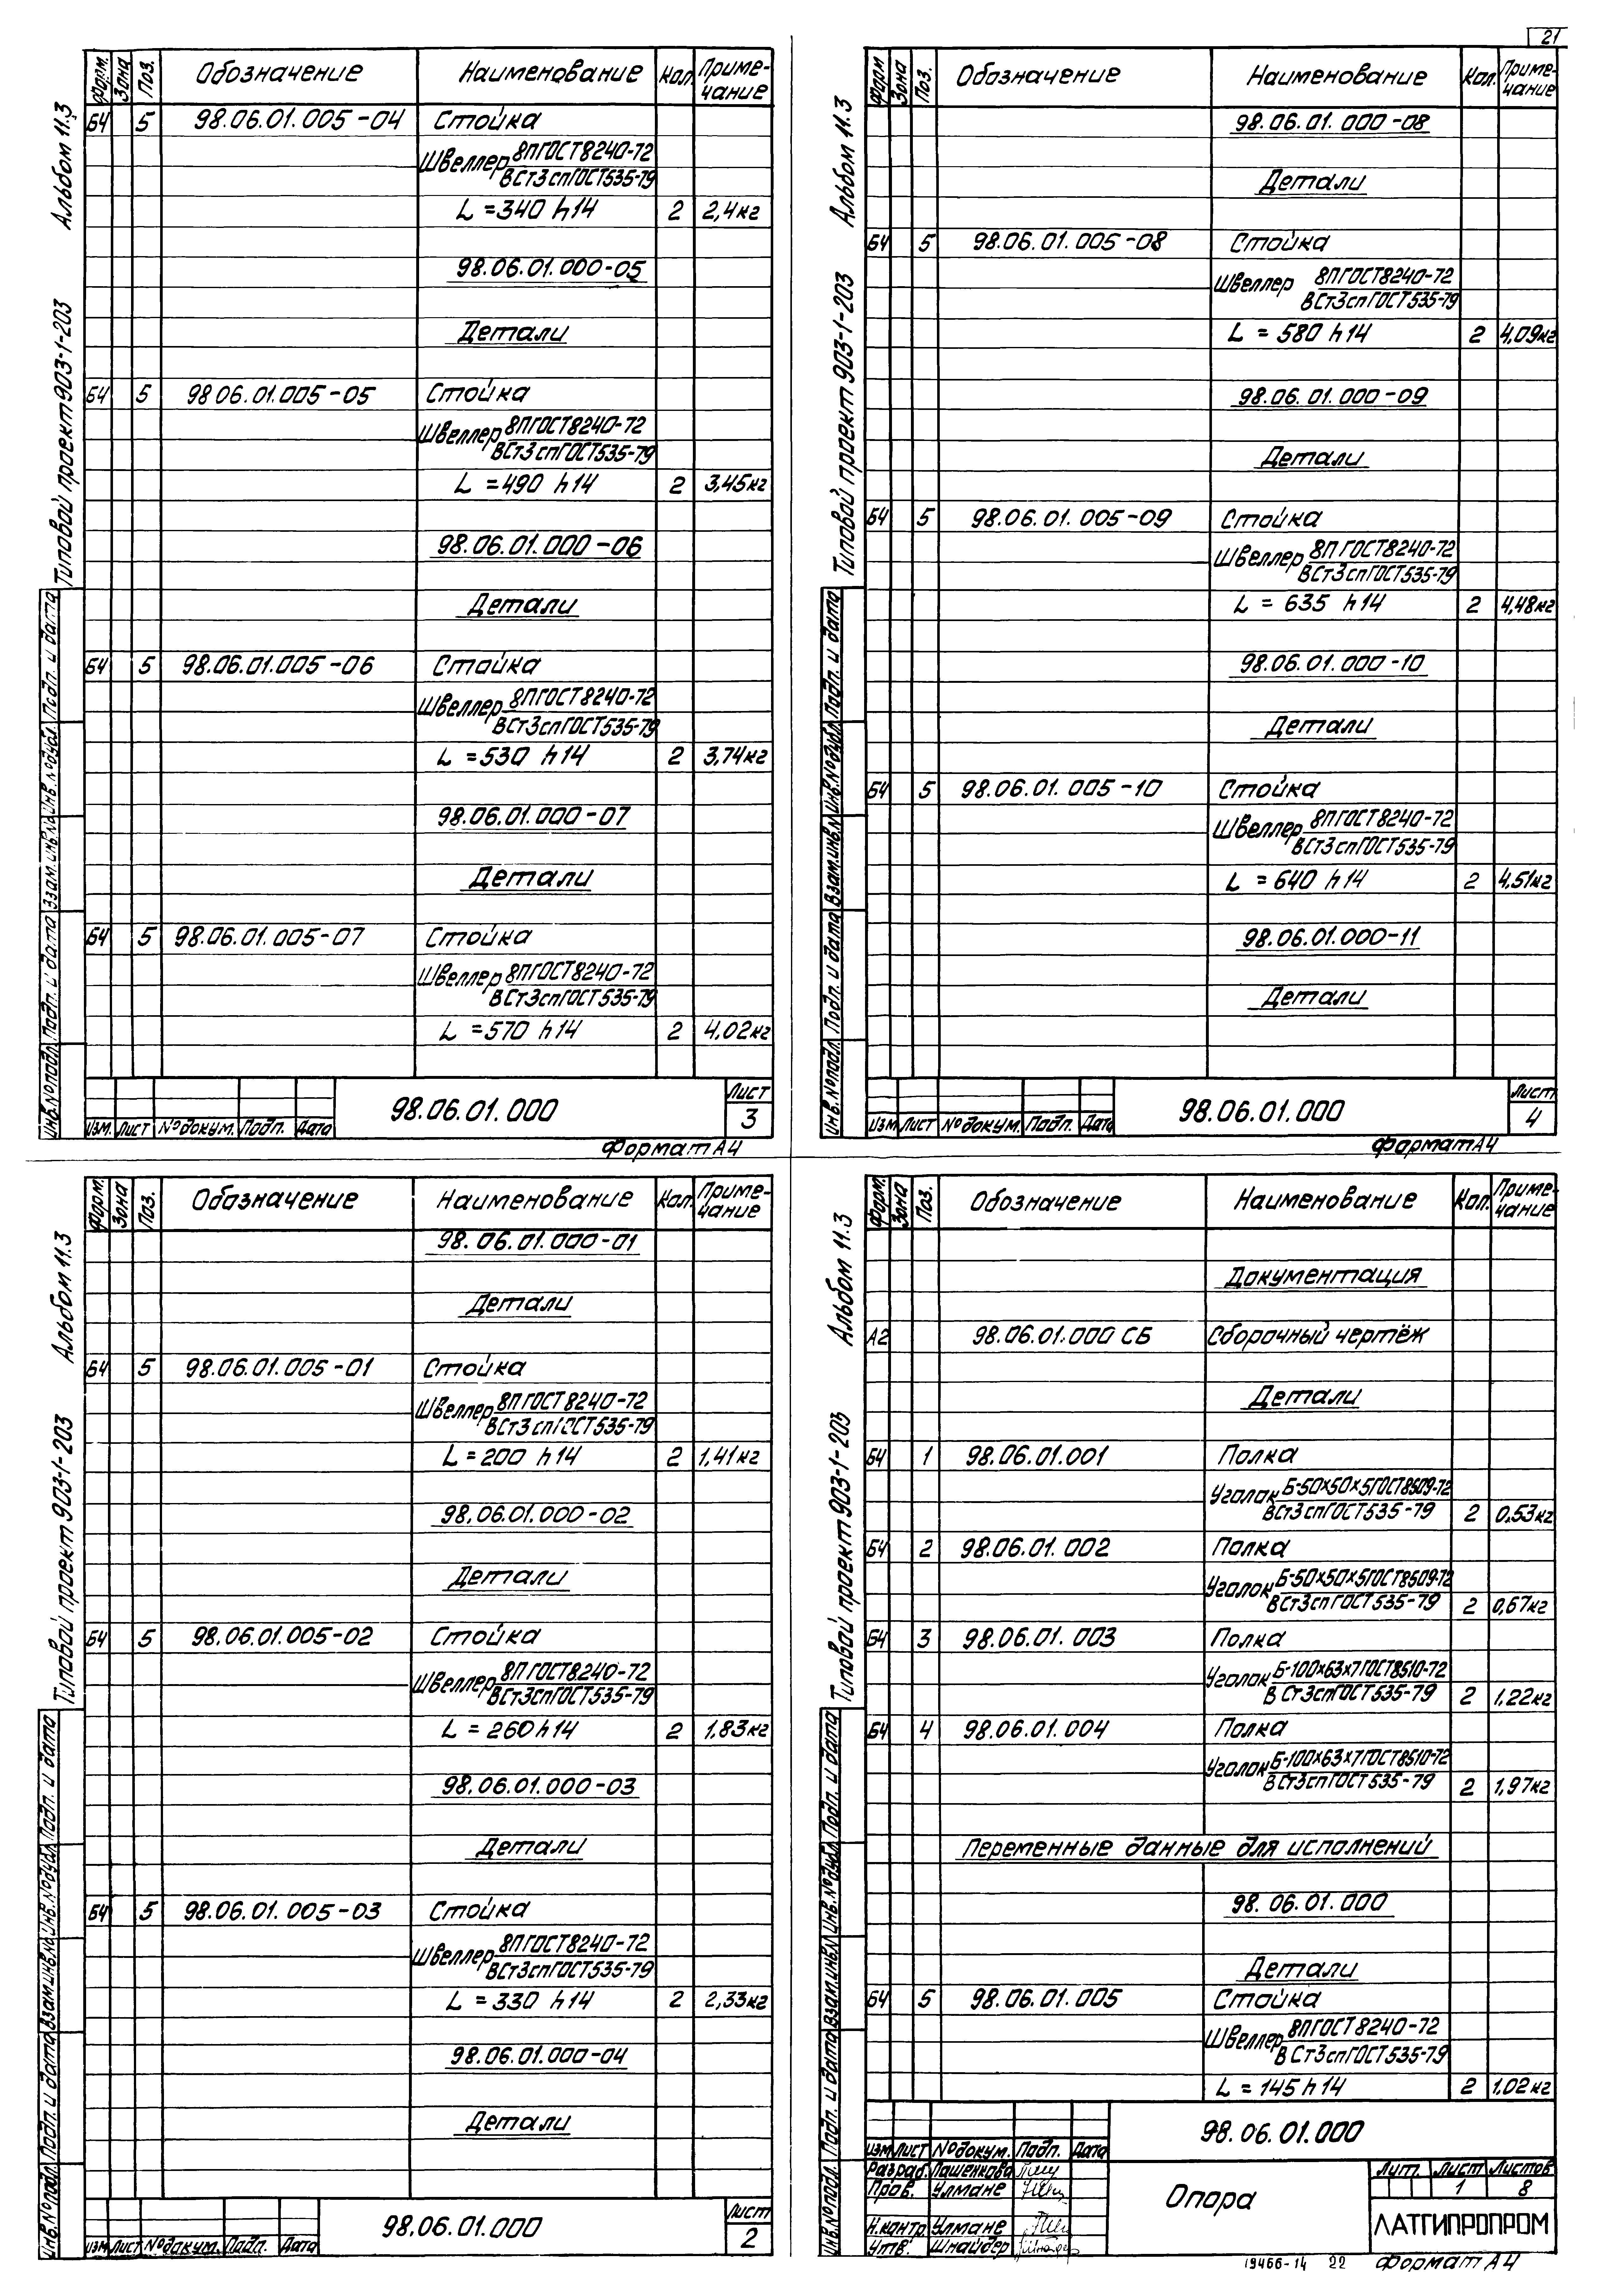 21
Альбом 11.3
Типовой проект 903-1-203
Форм. Зона Поз. Обозначение Наименование Кол. Примечание
БЧ 5 98.06.01.005-04 Стойка
Швеллер 8П ГОСТ 8240-72
ВСт3сп ГОСТ 535-79
L = 340 h14 2 2,4кг
98.06.01.000-05
Детали
БЧ 5 98 06.01.005-05 Стойка
Швеллер 8П ГОСТ 8240-72
ВСт3сп ГОСТ 535-79
L = 490 h14 2 3,45кг
98.06.01.000-06
Детали
БЧ 5 98.06.01.005-06 Стойка
Швеллер 8П ГОСТ 8240-72
ВСт3сп ГОСТ 535-79
L = 530 h14 2 3,74кг
98.06.01.000-07
Детали
БЧ 5 98.06.01.005-07 Стойка
Швеллер 8П ГОСТ 8240-72
ВСт3сп ГОСТ 535-79
L = 570 h14 2 4,02кг
Инв.№подл. Подп. и дата Взам.инв.№ Инв.№дубл. Подп. и дата
Изм. Лист №докум. Подп. Дата
98.06.01.000
Лист
3
Формат А4
Альбом 11.3
Типовой проект 903-1-203
Форм Зона Поз. Обозначение Наименование Кол. Примечание
98.06.01.000-08
Детали
БЧ 5 98.06.01.005-08 Стойка
Швеллер 8П ГОСТ 8240-72
ВСт3сп ГОСТ 535-79
L = 580 h14 2 4,09кг
98.06.01.000-09
Детали
БЧ 5 98.06.01.005-09 Стойка
Швеллер 8П ГОСТ 8240-72
ВСт3сп ГОСТ 535-79
L = 635 h14 2 4,48кг
98.06.01.000-10
Детали
БЧ 5 98.06.01.005-10 Стойка
Швеллер 8П ГОСТ 8240-72
ВСт3сп ГОСТ 535-79
L = 640 h14 2 4,51кг
98.06.01.000-11
Детали
Инв.№подл. Подп. и дата Взам.инв.№ Инв.№дубл. Подп. и дата
Изм Лист №докум. Подп. Дата
98.06.01.000
Лист
4
Формат А4
Альбом 11.3
Типовой проект 903-1-203
Форм. Зона Поз. Обозначение Наименование Кол. Примечание
98.06.01.000-01
Детали
БЧ 5 98.06.01.005-01 Стойка
Швеллер 8П ГОСТ 8240-72
ВСт3сп ГОСТ 535-79
L = 200 h14 2 1,41кг
98.06.01.000-02
Детали
БЧ 5 98.06.01.005-02 Стойка
Швеллер 8П ГОСТ 8240-72
ВСт3сп ГОСТ 535-79
L = 260 h14 2 1,83кг
98.06.01.000-03
Детали
БЧ 5 98.06.01.005-03 Стойка
Швеллер 8П ГОСТ 8240-72
ВСт3сп ГОСТ 535-79
L = 330 h14 2 2,33кг
98.06.01.000-04
Детали
Инв.№подл. Подп. и дата Взам.инв.№ Инв.№дубл. Подп. и дата
Изм Лист №докум. Подп. Дата
98.06.01.000
Лист
2
Альбом 11.3
Типовой проект 903-1-203
Форм. Зона Поз. Обозначение Наименование Кол. Примечание
Документация
А2 98.06.01.000 СБ Сборочный чертёж
Детали
БЧ 1 98.06.01.001 Полка
Уголок Б-50х50х5 ГОСТ 8509-72
ВСт3сп ГОСТ 535-79 2 0,53кг
БЧ 2 98.06.01.002 Полка
Уголок Б-50х50х5 ГОСТ 8509-72
ВСт3сп ГОСТ 535-79 2 0,67кг
БЧ 3 98.06.01.003 Полка
Уголок Б-100х63х7 ГОСТ 8510-72
ВСт3сп ГОСТ 535-79 2 1,22кг
БЧ 4 98.06.01.004 Полка
Уголок Б-100х63х7 ГОСТ 8510-72
ВСт3сп ГОСТ 535-79 2 1,97кг
Переменные данные для исполнений
98.06.01.000
Детали
БЧ 5 98.06.01.005 Стойка
Швеллер 8П ГОСТ 8240-72
ВСт3сп ГОСТ 535-79
L = 145 h14 2 1,02кг
Инв.№подл. Подп. и дата Взам.инв.№ Инв.№дубл. Подп. и дата
98.06.01.000
Изм Лист №докум. Подп. Дата
Разраб. Пашенкова
Пров. Улмане
Н.контр. Улмане
Утв. Шнайдер
Опора
Лит. Лист Листов
1 8
ЛАТГИПРОПРОМ
19466-14 22 Формат А4